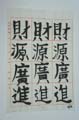 財源廣進
財源廣進
財源廣進